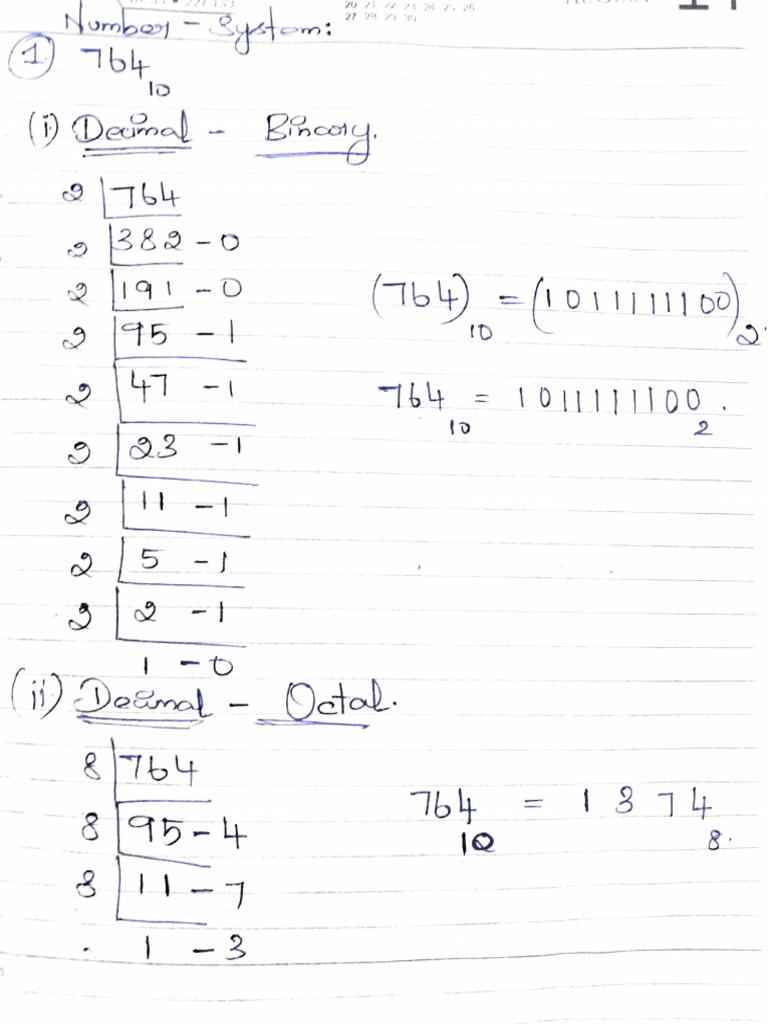 20 21 22 23 24 25 26
27 28 29 30
Number - System:
① 764₁₀
(i) Decimal - Binary.
2 764
2 382 - 0
2 191 - 0
(764)₁₀ = (1011111100)₂.
2 95 - 1
2 47 - 1
764₁₀ = 1011111100₂.
2 23 - 1
2 11 - 1
2 5 - 1
2 2 - 1
1 - 0
(ii) Decimal - Octal.
8 764
764₁₀ = 1374₈.
8 95 - 4
8 11 - 7
1 - 3